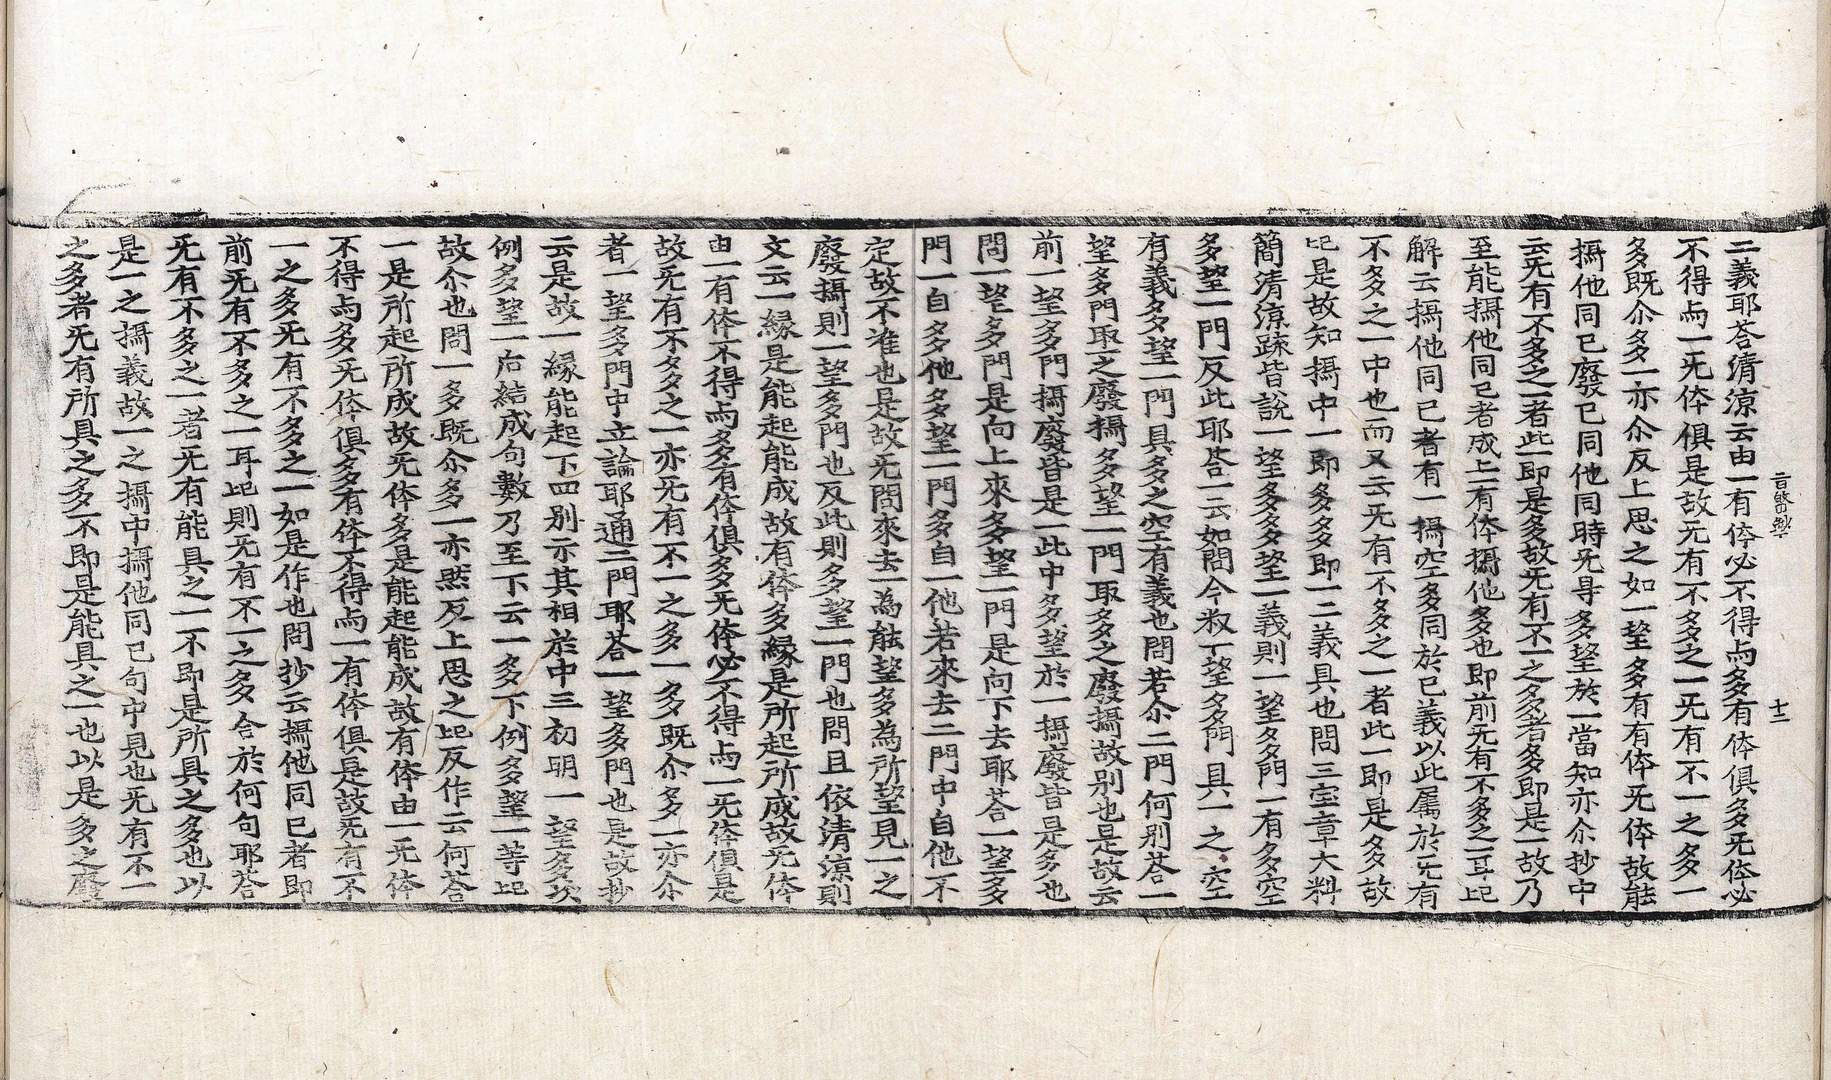 二義耶荅清涼云由一有体必不得与多有体俱多旡体必
不得与一旡体俱是故旡有不多之一旡有不一之多一
多既尒多一亦尒反上思之如一望多有有体旡体故能
攝他同已廢已同他同時旡㝵多望於一當知亦尒抄中
云旡有不多之一者此一即是多故旡有不一之多者多即是一故乃
至能攝他同已者成上有体攝他多也即前旡有不多之一耳㠯
解云攝他同已者有一攝空多同於已義以此属於旡有
不多之一中也而又云旡有不多之一者此一即是多故
㠯是故知攝中一即多多即一二義具也問三宝章大料
簡清涼䟽皆說一望多多望一義則一望多門一有多空
多望一門反此耶荅一云如問今叔一望多門具一之空
有義多望一門具多之空有義也問若尒二門何別荅一
望多門取一之廢攝多望一門取多之廢攝故别也是故云
前一望多門攝廢皆是一此中多望於一攝廢皆是多也
問一望多門是向上來多望一門是向下去耶荅一望多
門一自多他多望一門多自一他若來去二門中自他不
定故不准也是故旡問來去一為能望多為所望見一之
廢攝則一望多門也反此則多望一門也問且依清涼則
文云一縁是能起能成故有体多縁是所起所成故旡体
由一有体不得与多有体俱多旡体必不得与一旡体俱是
故旡有不多之一亦旡有不一之多一多既尒多一亦尒
者一望多門中立論耶通二門耶荅一望多門也是故抄
云是故一縁能起下四别示其相於中三初明一望多次
例多望一后結成句數乃至下云一多下例多望一等㠯
故尒也問一多既尒多一亦然反上思之㠯反作云何荅
一是所起所成故旡体多是能起能成故有体由一旡体
不得与多旡体俱多有体不得与一有体俱是故旡有不
一之多旡有不多之一如是作也問抄云攝他同已者即
前旡有不多之一耳㠯則旡有不一之多合於何句耶荅
旡有不多之一者旡有能具之一不即是所具之多也以
是一之攝義故一之攝中攝他同已句中見也旡有不一
之多者旡有所具之多不即是能具之一也以是多之廢
十二